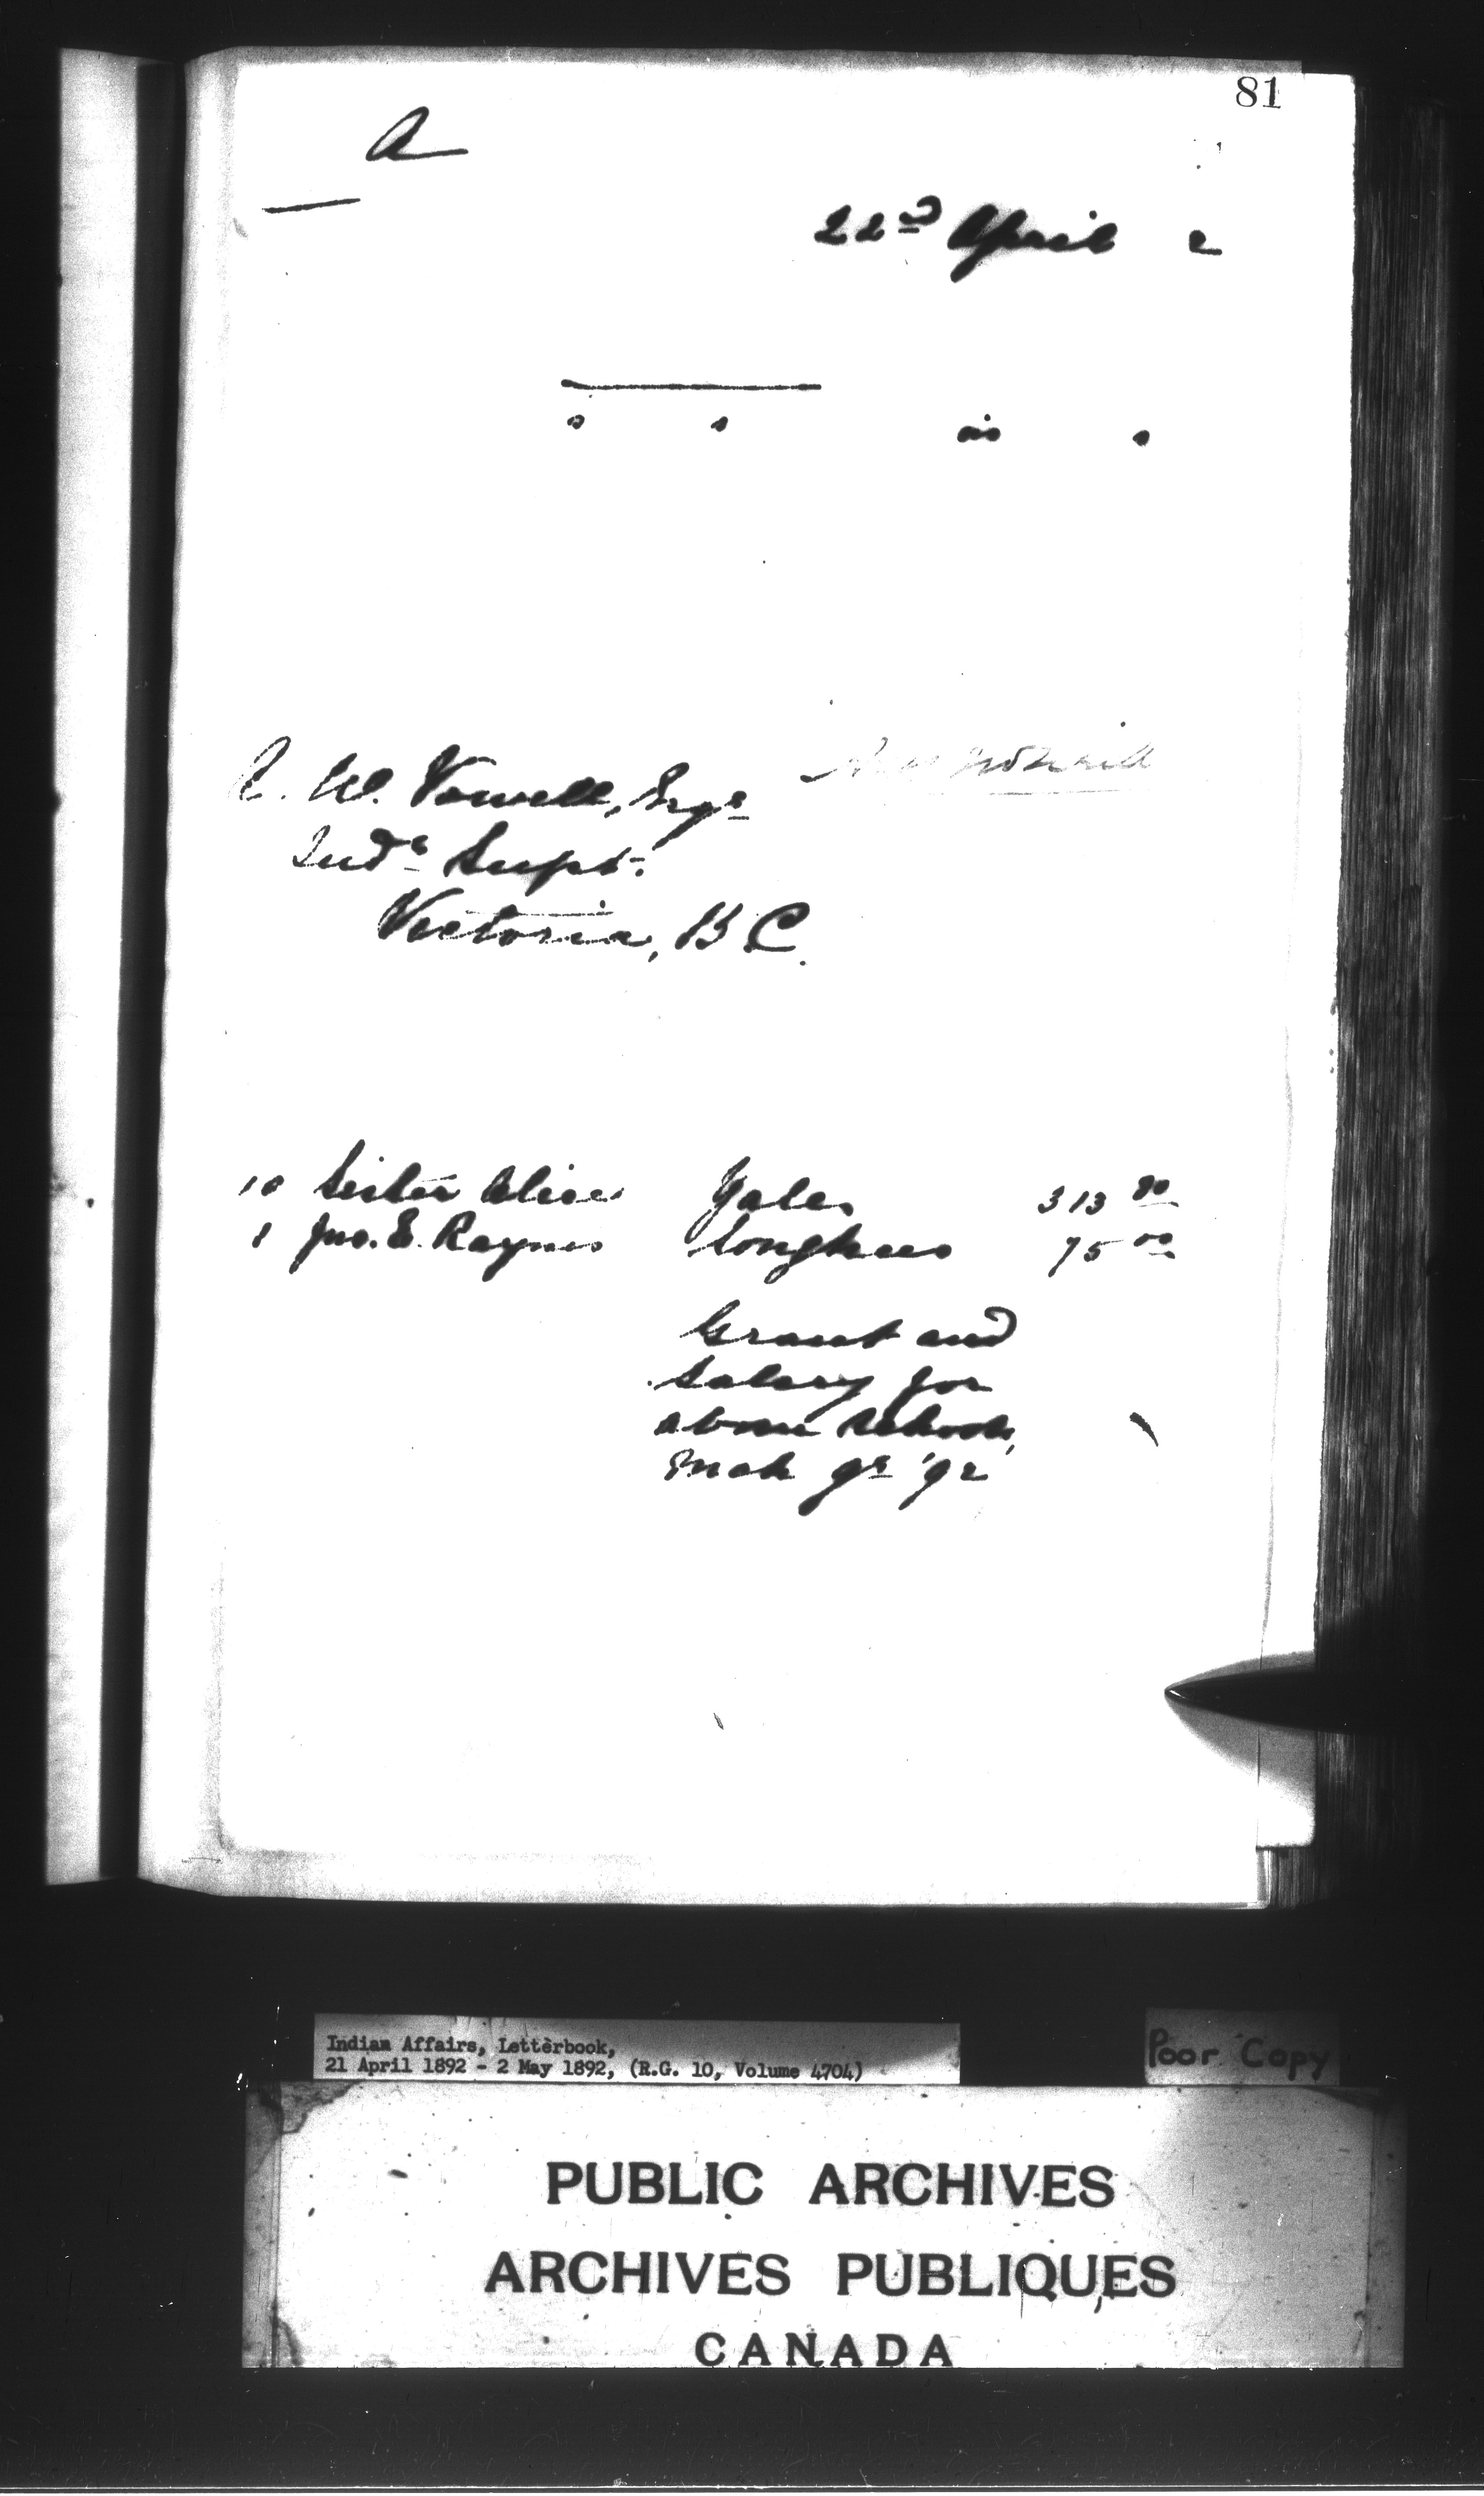 81
A
22nd April 2
s s is s
A. W. Vowell, Esqr
Indn Supt.
Victoria, B C.
10 Sister Alice Yale 313 90
1 Jno. E. Rayner Songhees 75 00
Grant and
Salary for
above schools,
Mch qr '92
Indian Affairs, Letterbook,
21 April 1892 - 2 May 1892, (R.G. 10, Volume 4704)
Poor Copy
PUBLIC ARCHIVES
ARCHIVES PUBLIQUES
CANADA